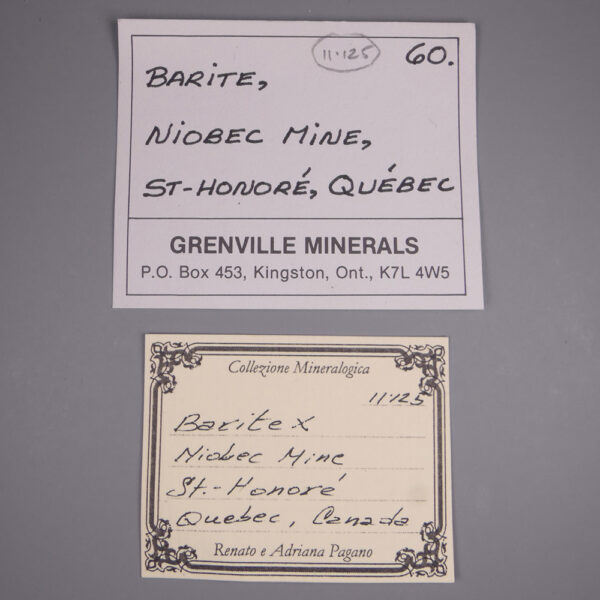 11·125 60.
BARITE,
NIOBEC MINE,
ST-HONORÉ, QUÉBEC
GRENVILLE MINERALS
P.O. Box 453, Kingston, Ont., K7L 4W5
Collezione Mineralogica
11·125
Barite x
Niobec Mine
St.-Honoré
Quebec, Canada
Renato e Adriana Pagano